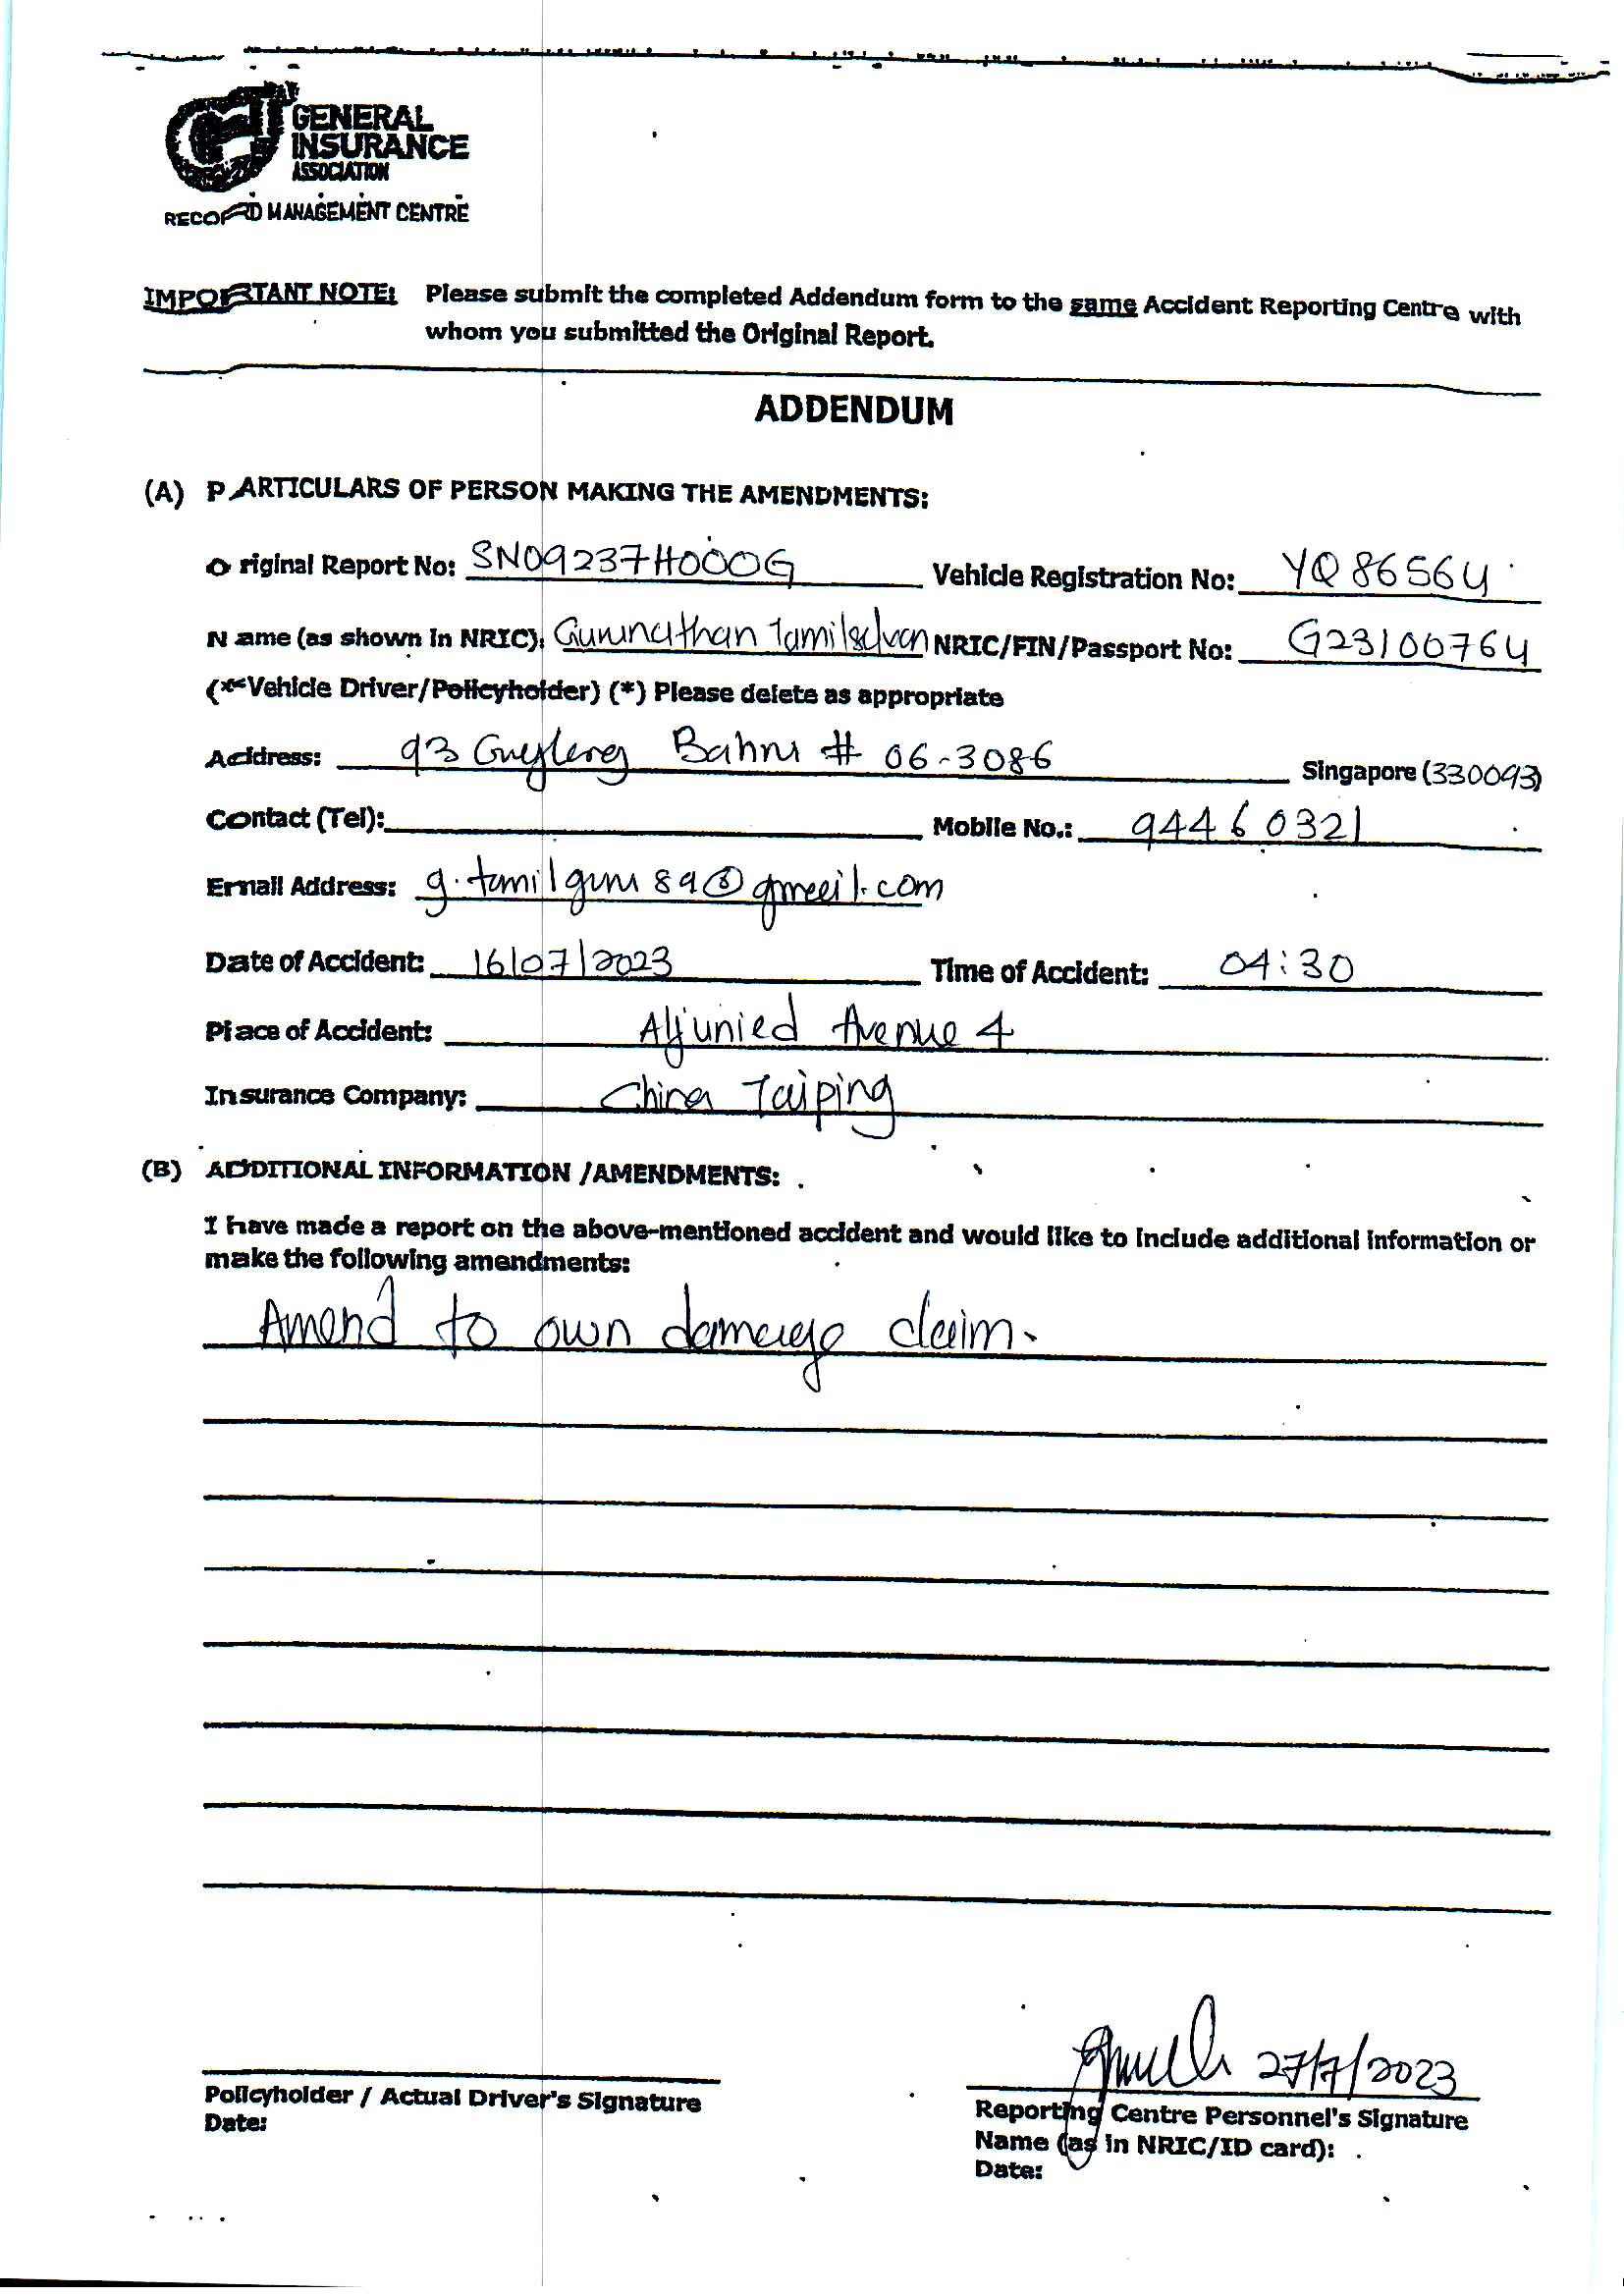 GENERAL
INSURANCE
ASSOCIATION
RECORD MANAGEMENT CENTRE
IMPORTANT NOTE: Please submit the completed Addendum form to the same Accident Reporting Centre with
whom you submitted the Original Report.
ADDENDUM
(A) PARTICULARS OF PERSON MAKING THE AMENDMENTS:
Original Report No: SN09237H000G Vehicle Registration No: YQ8656U
Name (as shown in NRIC): Gurunathan Tamilselvan NRIC/FIN/Passport No: G2310076U
(**Vehicle Driver/Policyholder) (*) Please delete as appropriate
Address: 93 Bahru # 06-3086 Singapore (330093)
Contact (Tel): Mobile No.: 94460321
Email Address: g.tamilguru89@gmail.com
Date of Accident: 16/07/2023 Time of Accident: 04:30
Place of Accident: Aljunied Avenue 4
Insurance Company: China Taiping
(B) ADDITIONAL INFORMATION /AMENDMENTS:
I have made a report on the above-mentioned accident and would like to include additional information or
make the following amendments:
Amend to own damage claim.
27/7/2023
Policyholder / Actual Driver's Signature
Date:
Reporting Centre Personnel's Signature
Name (as in NRIC/ID card):
Date: